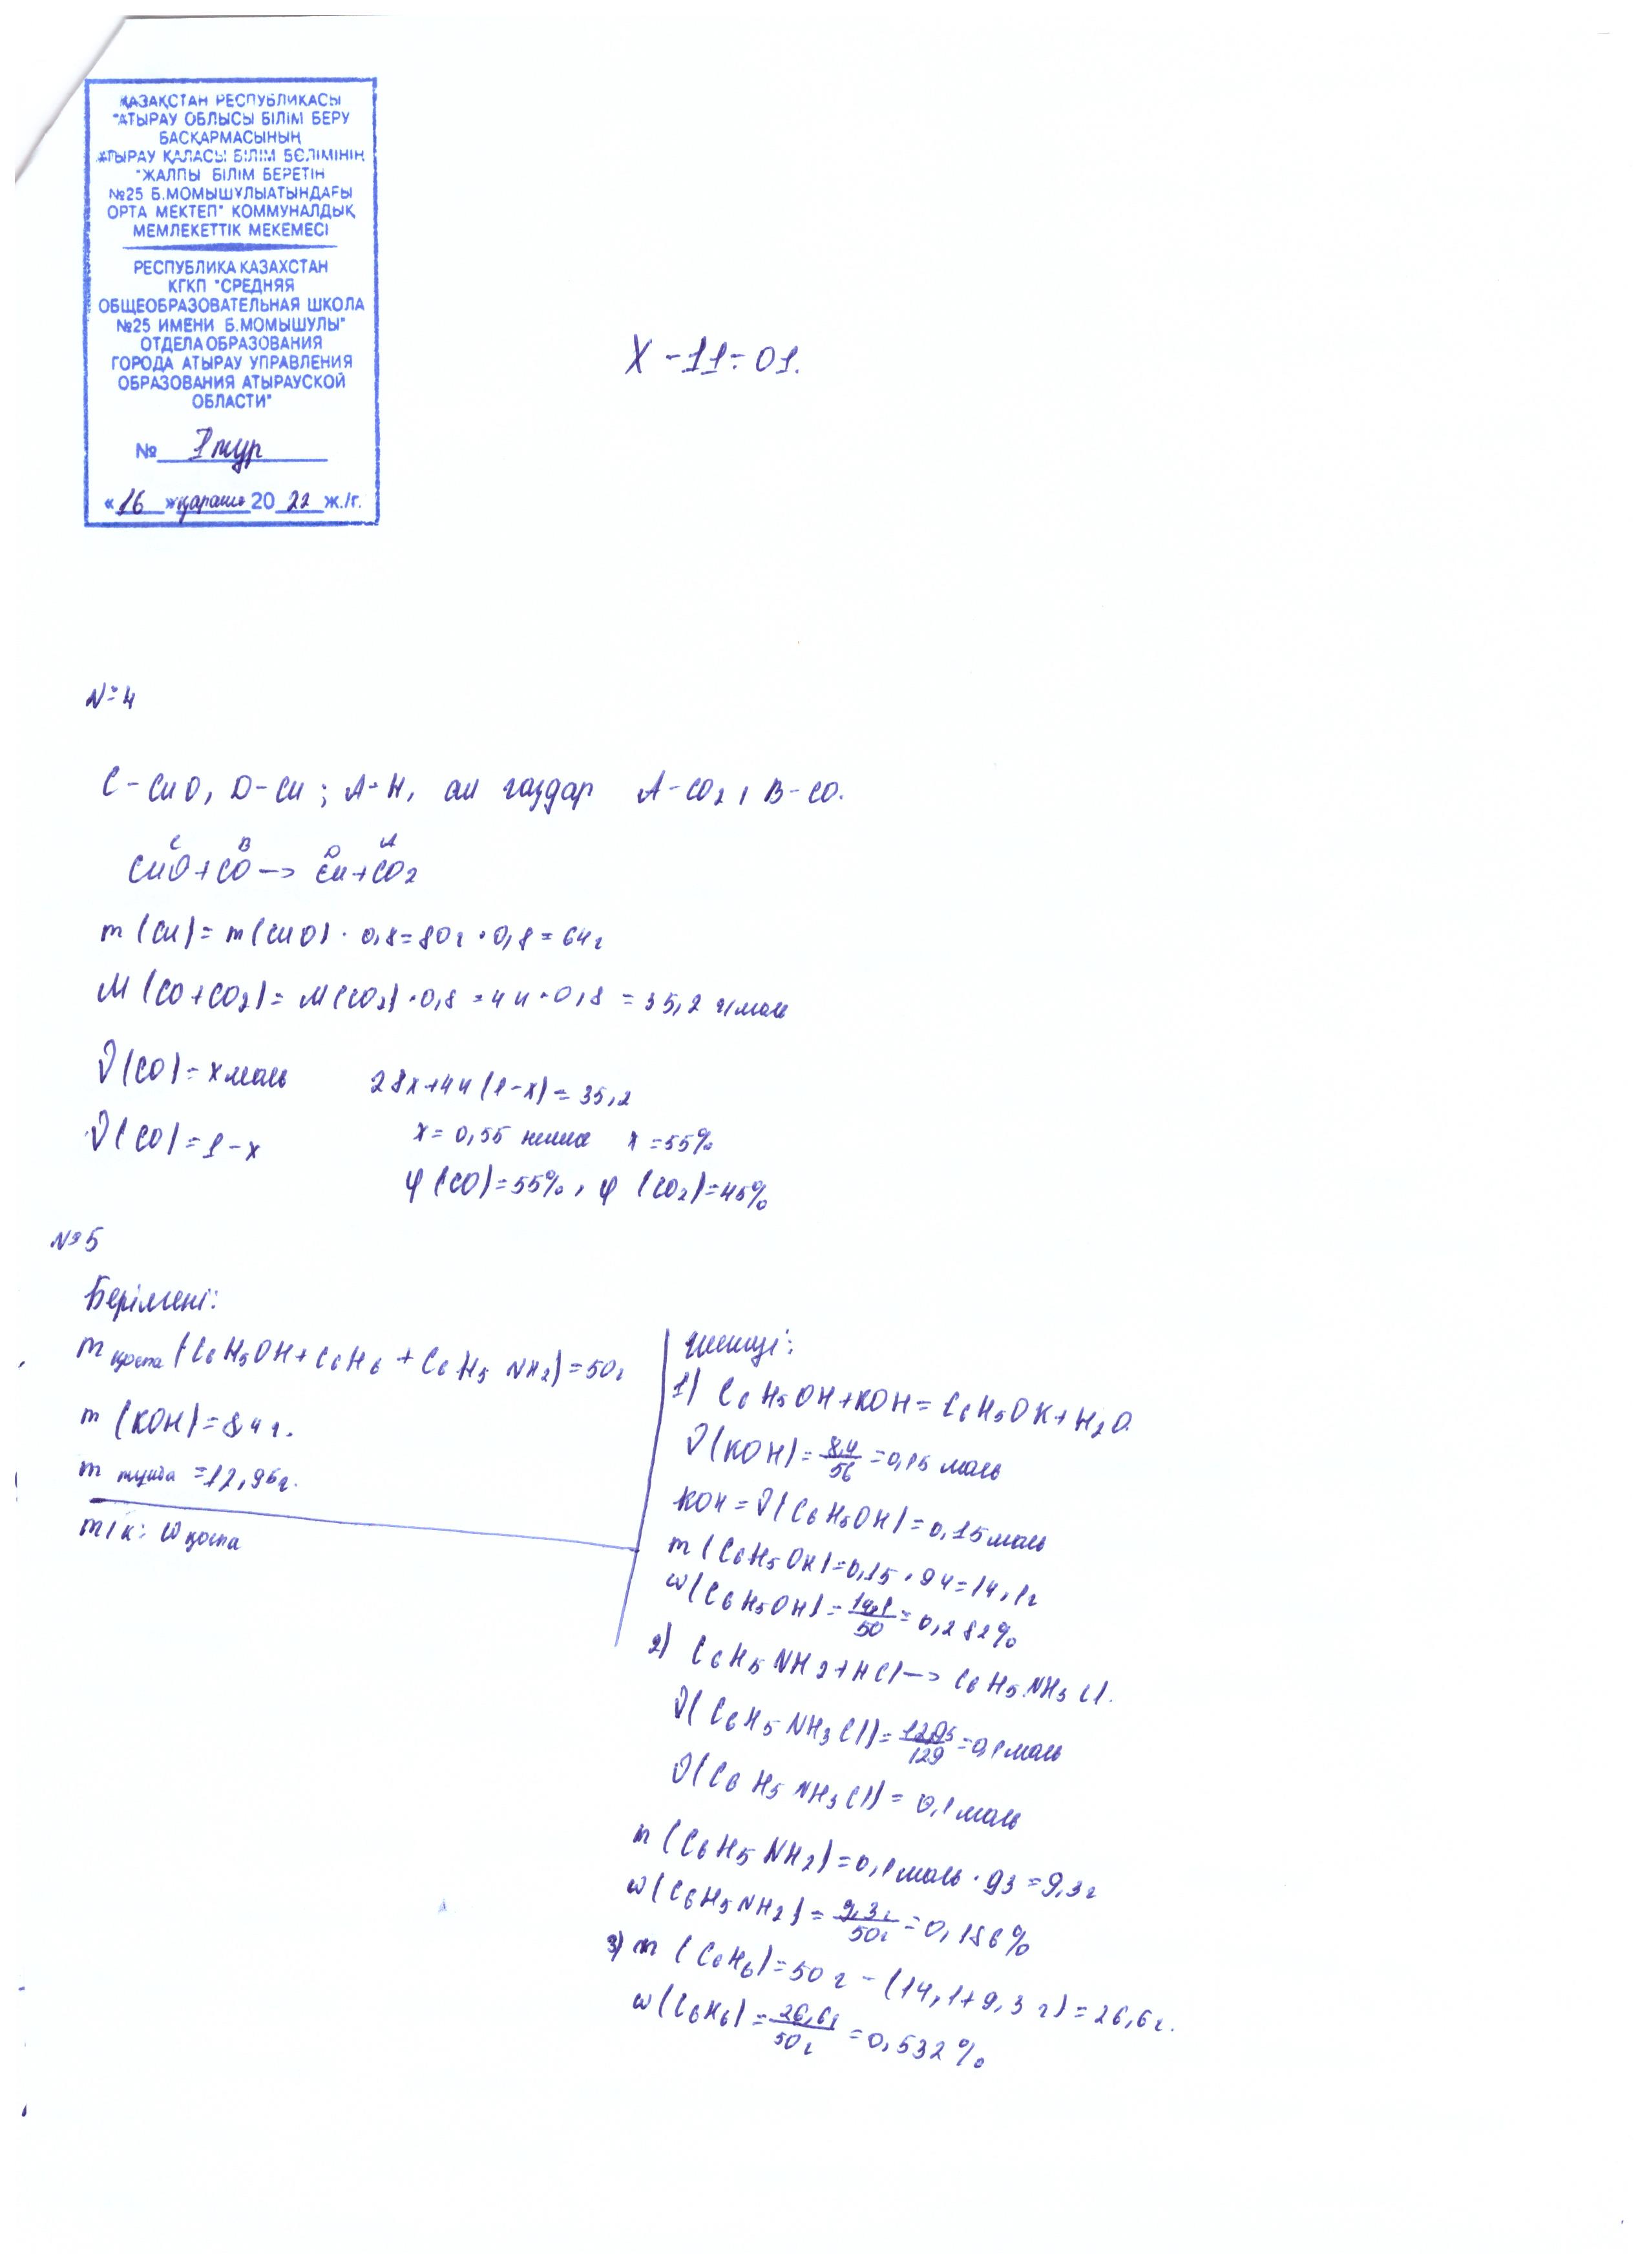 ҚАЗАҚСТАН РЕСПУБЛИКАСЫ
"АТЫРАУ ОБЛЫСЫ БІЛІМ БЕРУ
БАСҚАРМАСЫНЫҢ
АТЫРАУ ҚАЛАСЫ БІЛІМ БӨЛІМІНІҢ
"ЖАЛПЫ БІЛІМ БЕРЕТІН
№25 Б.МОМЫШҰЛЫАТЫНДАҒЫ
ОРТА МЕКТЕП" КОММУНАЛДЫҚ
МЕМЛЕКЕТТІК МЕКЕМЕСІ
РЕСПУБЛИКА КАЗАХСТАН
КГКП "СРЕДНЯЯ
ОБЩЕОБРАЗОВАТЕЛЬНАЯ ШКОЛА
№25 ИМЕНИ Б.МОМЫШУЛЫ"
ОТДЕЛА ОБРАЗОВАНИЯ
ГОРОДА АТЫРАУ УПРАВЛЕНИЯ
ОБРАЗОВАНИЯ АТЫРАУСКОЙ
ОБЛАСТИ"
№ 1 тур
«16» қараша 2022 ж./г.
X-11-01.
№4
C-CuO, D-Cu; A-H, ал газдар A-CO2, B-CO.
C B D A
CuO+CO -> Cu+CO2
m(Cu)=m(CuO)·0,8=80г·0,8=64г
M(CO+CO2)=M(CO2)·0,8=44·0,8=35,2 г/моль
ν(CO)=x моль 28x+44(1-x)=35,2
ν(CO)=1-x x=0,55 x=55%
φ(CO)=55%, φ(CO2)=45%
№5
Берілгені:
m қоспа (C6H5OH+C6H6+C6H5NH2)=50г
m(KOH)=8,4г.
m тұнба =12,95г.
т/к: ω қоспа
Шешуі:
1) C6H5OH+KOH=C6H5OK+H2O
ν(KOH)=8,4/56=0,15 моль
KOH=ν(C6H5OH)=0,15моль
m(C6H5OK)=0,15·94=14,1г
ω(C6H5OH)=14,1/50=0,282%
2) C6H5NH2+HCl -> C6H5NH3Cl.
ν(C6H5NH3Cl)=12,95/129=0,1моль
ν(C6H5NH3Cl)=0,1моль
m(C6H5NH2)=0,1моль·93=9,3г
ω(C6H5NH2)=9,3г/50г=0,186%
3) m(C6H6)=50г-(14,1+9,3г)=26,6г.
ω(C6H6)=26,6г/50г=0,532%